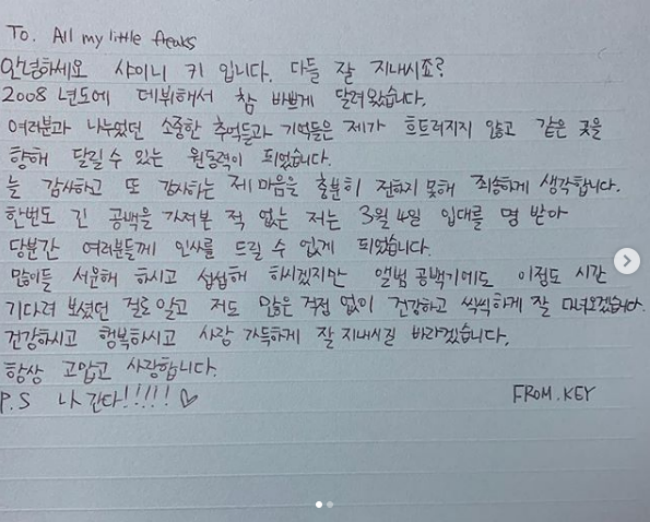 To. All my little freaks
안녕하세요 샤이니 키 입니다. 다들 잘 지내시죠?
2008 년도에 데뷔해서 참 바쁘게 달려왔습니다.
여러분과 나누었던 소중한 추억들과 기억들은 제가 흐트러지지 않고 같은 곳을
향해 달릴 수 있는 원동력이 되었습니다.
늘 감사하고 또 감사하는 제 마음을 충분히 전하지 못해 죄송하게 생각합니다.
한번도 긴 공백을 가져본 적 없는 저는 3월 4일 입대를 명 받아
당분간 여러분들께 인사를 드릴 수 없게 되었습니다.
많이들 서운해 하시고 섭섭해 하시겠지만 앨범 공백기에도 이정도 시간
기다려 보셨던 걸로 알고 저도 많은 걱정 없이 건강하고 씩씩하게 잘 다녀오겠습니다.
건강하시고 행복하시고 사랑 가득하게 잘 지내시길 바라겠습니다.
항상 고맙고 사랑합니다.
P.S 나 간다!!!!! ♡ FROM.KEY